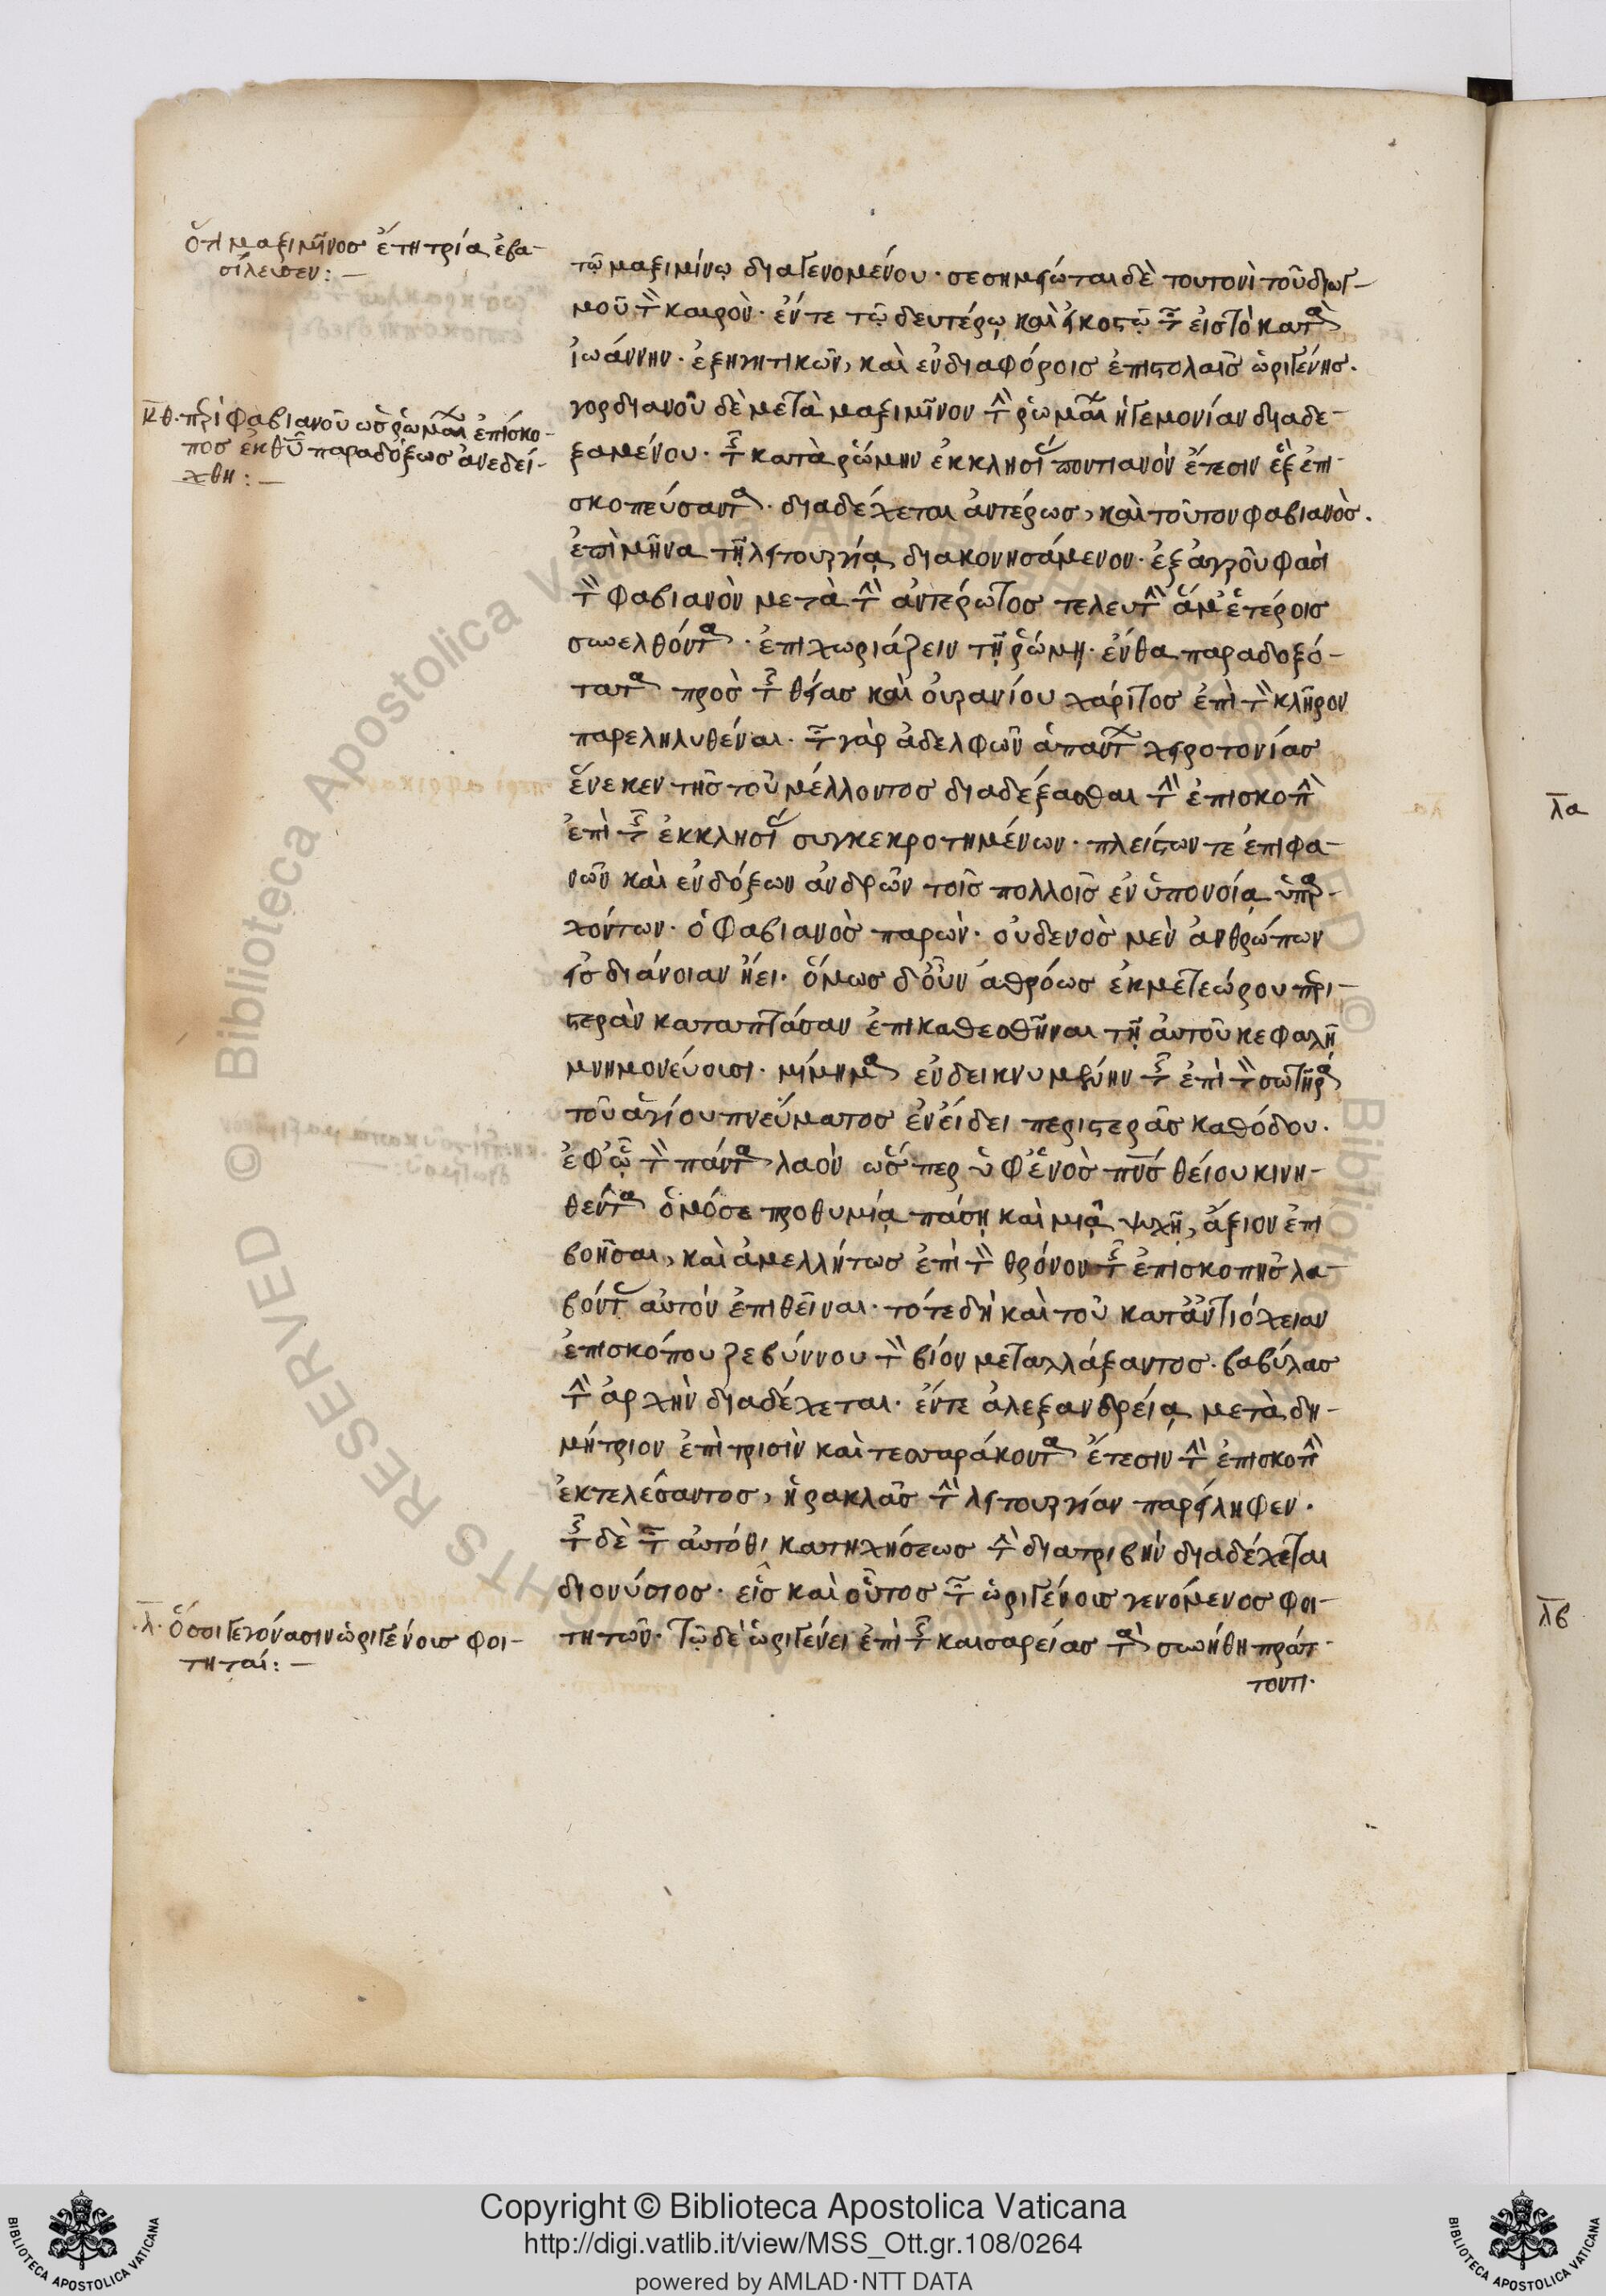 ὅτι μαξιμῖνος ἔτη τρία ἐβα-
σίλευσεν: —
κθ. περὶ φαβιανοῦ ὡς ῥωμαίων ἐπίσκο-
πος ἐκ θῦ παραδόξως ἀνεδεί-
χθη: —
.λ. ὅσοι γεγόνασιν ὠριγένους φοι-
τηταί: —
τῷ μαξιμίνῳ διαγενομένου· σεσημείωται δὲ τουτονὶ τοῦ διωγ-
μοῦ τὸν καιρὸν· ἔν τε τῷ δευτέρῳ καὶ εἰκοστῷ τῶν εἰς τὸ κατὰ
ἰωάννην· ἐξηγητικῶν, καὶ ἐν διαφόροις ἐπιστολαῖς ὠριγένης.
γορδιανοῦ δὲ μετὰ μαξιμῖνον τὴν ῥωμαίων ἡγεμονίαν διαδε-
ξαμένου· τῆς κατὰ ῥώμην ἐκκλησίας ποντιανὸν ἔτεσιν ἓξ ἐπι-
σκοπεύσαντα· διαδέχεται ἀντέρως, καὶ τοῦτον φαβιανὸς.
ἐπὶ μῆνα τῇ λειτουργίᾳ διακονησάμενον· ἐξ ἀγροῦ φασὶ
τὸν φαβιανὸν μετὰ τὴν ἀντέρωτος τελευτὴν ἅμ' ἑτέροις
συνελθόντα· ἐπιχωριάζειν τῇ ῥώμῃ· ἔνθα παραδοξό-
τατα πρὸς τῆς θείας καὶ οὐρανίου χάριτος ἐπὶ τὸν κλῆρον
παρεληλυθέναι· τῶν γὰρ ἀδελφῶν ἁπάντων χειροτονίας
ἕνεκεν τῆς τοῦ μέλλοντος διαδέξασθαι τὴν ἐπισκοπὴν
ἐπὶ τῆς ἐκκλησίας συγκεκροτημένων· πλείστων τε ἐπιφα-
νῶν καὶ ἐνδόξων ἀνδρῶν τοῖς πολλοῖς ἐν ὑπονοίᾳ ὑπαρ-
χόντων· ὁ φαβιανὸς παρὼν· οὐδενὸς μὲν ἀνθρώπων
εἰς διάνοιαν ᾔει· ὅμως δ' οὖν ἀθρόως ἐκ μετεώρου περι-
στερὰν καταπτάσαν ἐπικαθεσθῆναι τῇ αὐτοῦ κεφαλῇ
μνημονεύουσι· μίμημα ἐνδεικνυμένην τῆς ἐπὶ τὸν σωτῆρα
τοῦ ἁγίου πνεύματος ἐν εἴδει περιστερᾶς καθόδου.
ἐφ' ᾧ τὸν πάντα λαὸν ὥσπερ ὑφ' ἑνὸς πνς θείου κινη-
θέντα ὁμόσε προθυμίᾳ πάσῃ καὶ μιᾷ ψυχῇ, ἄξιον ἐπι
βοῆσαι, καὶ ἀμελλήτως ἐπὶ τὸν θρόνον τῆς ἐπισκοπῆς λα-
βόντας αὐτὸν ἐπιθεῖναι· τότε δὴ καὶ τοῦ κατ' ἀντιόχειαν
ἐπισκόπου ζεβύννου τὸν βίον μεταλλάξαντος· βαβύλας
τὴν ἀρχὴν διαδέχεται· ἔν τε ἀλεξανδρείᾳ μετὰ δη-
μήτριον ἐπὶ τρισὶν καὶ τεσσαράκοντα ἔτεσιν τὴν ἐπισκοπὴν
ἐκτελέσαντος, ἡρακλᾶς τὴν λειτουργίαν παρείληφεν.
τῆς δὲ τῶν αὐτόθι κατηχήσεως τὴν διατριβὴν διαδέχεται
διονύσιος· εἷς καὶ οὗτος τῶν ὠριγένους γενόμενος φοι-
τητῶν· τῷ δὲ ὠριγένει ἐπὶ τῆς καισαρείας τὰ συνήθη πράτ-
τοντι.
λα
λβ
Copyright © Biblioteca Apostolica Vaticana
http://digi.vatlib.it/view/MSS_Ott.gr.108/0264
powered by AMLAD·NTT DATA
BIBLIOTECA APOSTOLICA VATICANA
BIBLIOTECA APOSTOLICA VATICANA